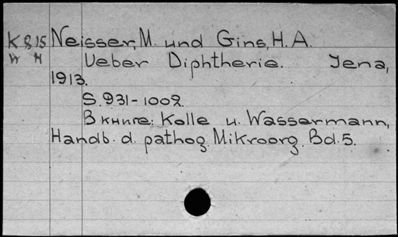 К 815 Neisser, M. und Gins, H.A.
Ueber Diphtherie. Jena,
1913.
S. 931-1002.
В книге: Kolle u. Wassermann,
Handb. d. pathog. Mikroorg. Bd. 5.